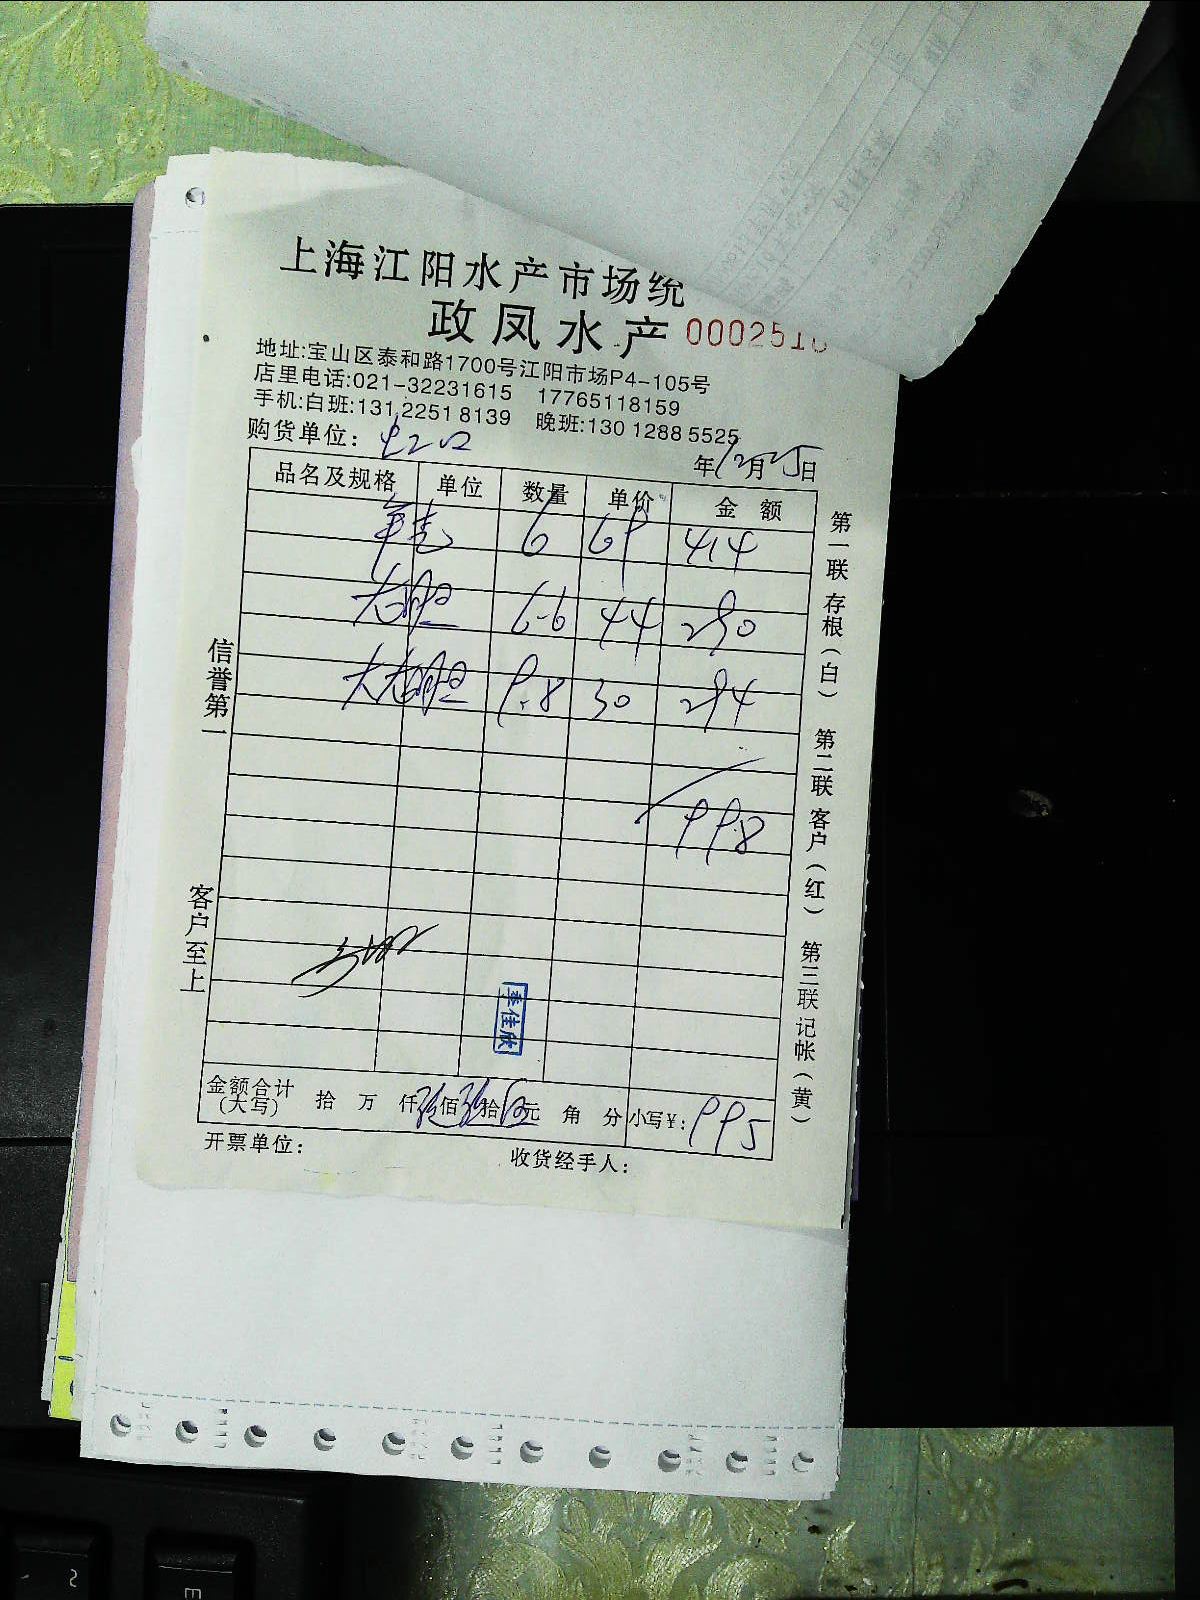 上海江阳水产市场统
政凤水产 0002516
地址:宝山区泰和路1700号江阳市场P4-105号
店里电话:021-32231615 17765118159
手机:白班:131 2251 8139 晚班:130 1288 5525
购货单位: 虹口
年12月25日
品名及规格 单位 数量 单价 金额
6 69 414
6.6 44 290
9.8 30 294
998
季佳欣
金额合计
(大写) 拾 万 仟 玖佰玖拾伍元 角 分 小写¥: 995
开票单位: 收货经手人:
信誉第一
客户至上
第一联 存根(白) 第二联 客户(红) 第三联 记帐(黄)